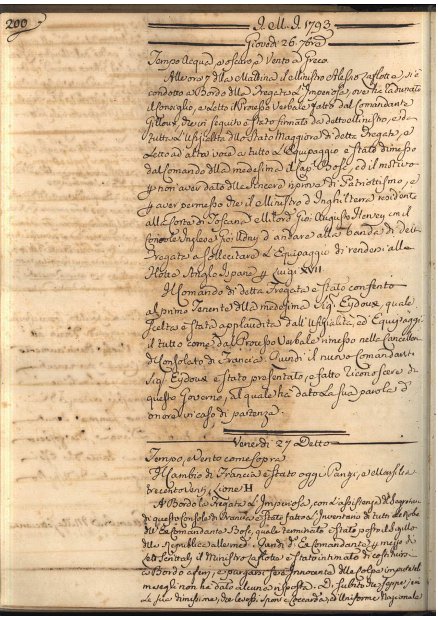 200
J. M. J. 1793
Giovedì 26.
Tempo Acqua, e oscuro, e Vento a Greco.
Alle ore 7 della Mattina il Ministro si è
condotto a Bordo della Fregata L'Imperiosa, ove ha radunato
il Consiglio, e Letto il Processo Verbale fatto dal Comandante
che in seguito è stato firmato da detto Ministro, e da
tutta L'Ufizialità dello Stato Maggiore di detta Fregata, e
Letto ad alta voce a tutto L'Equipaggio è stato dimesso
dal Comando della medesima il Bose, ed il motivo
non aver dato delle sincere riprove di Patriotismo, e
aver permesso che il Ministro d'Inghilterra residente
alla Corte di Toscana Milord Gio: Augusto Hervey, con il
Console Inglese Gio: Udny d'andare alla banda di detta
Fregata a sollecitare L'Equipaggio di rendersi alla
Flotta Anglo Ispana Luigi XVII
Il Comando di detta Fregata è stato conferito
al primo Tenente della medesima Sig: Eydoux, quale
scelta è stata applaudita dall'Ufizialità, ed Equipaggi
il tutto come dal Processo Verbale rimesso nella Cancelleria
di Consolato di Francia. Quindi il nuovo Comandante
Sig: Eydoux è stato presentato, e fatto riconoscere da
questo Governo, al quale ha dato La sua parola d'
onore in caso di partenza.
Venerdì 27 Detto
Tempo, e Vento come sopra
Il Cambio di Francia è stato oggi Parigi, e Marsilia
A Bordo La Fregata L'Imperiosa, con L'assistenza del
di questo Console di Francia è stato fatto L'Inventario di tutte le Robe
dell'Ex Comandante Bose, quale terminato è stato posto il Sigillo
della Republica alle med.e Quindi d.o Ex Comandante mezzo di
il Ministro è stato intimato di costituirsi
a Bordo a fin, e purgarsi fare Innocente delle colpe
non ha dato alcuna risposta. Di subito
La sua dimissione, Spone e Coccarda, ed Uniforme Nazionale